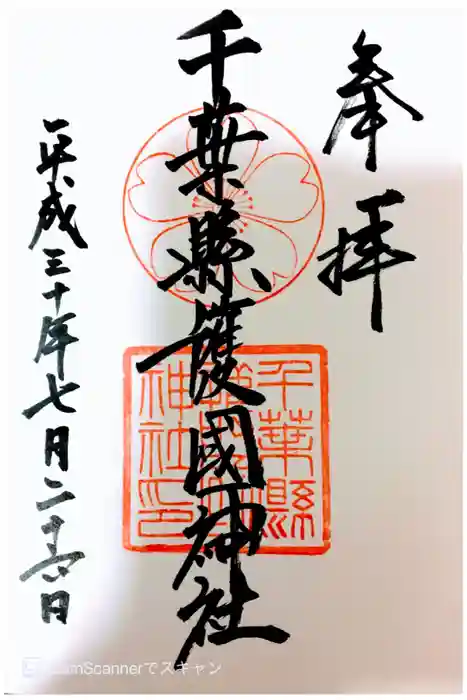 奉拝
千葉縣護國神社
平成三十年七月二十六日
千葉縣
神社印
CamScannerでスキャン